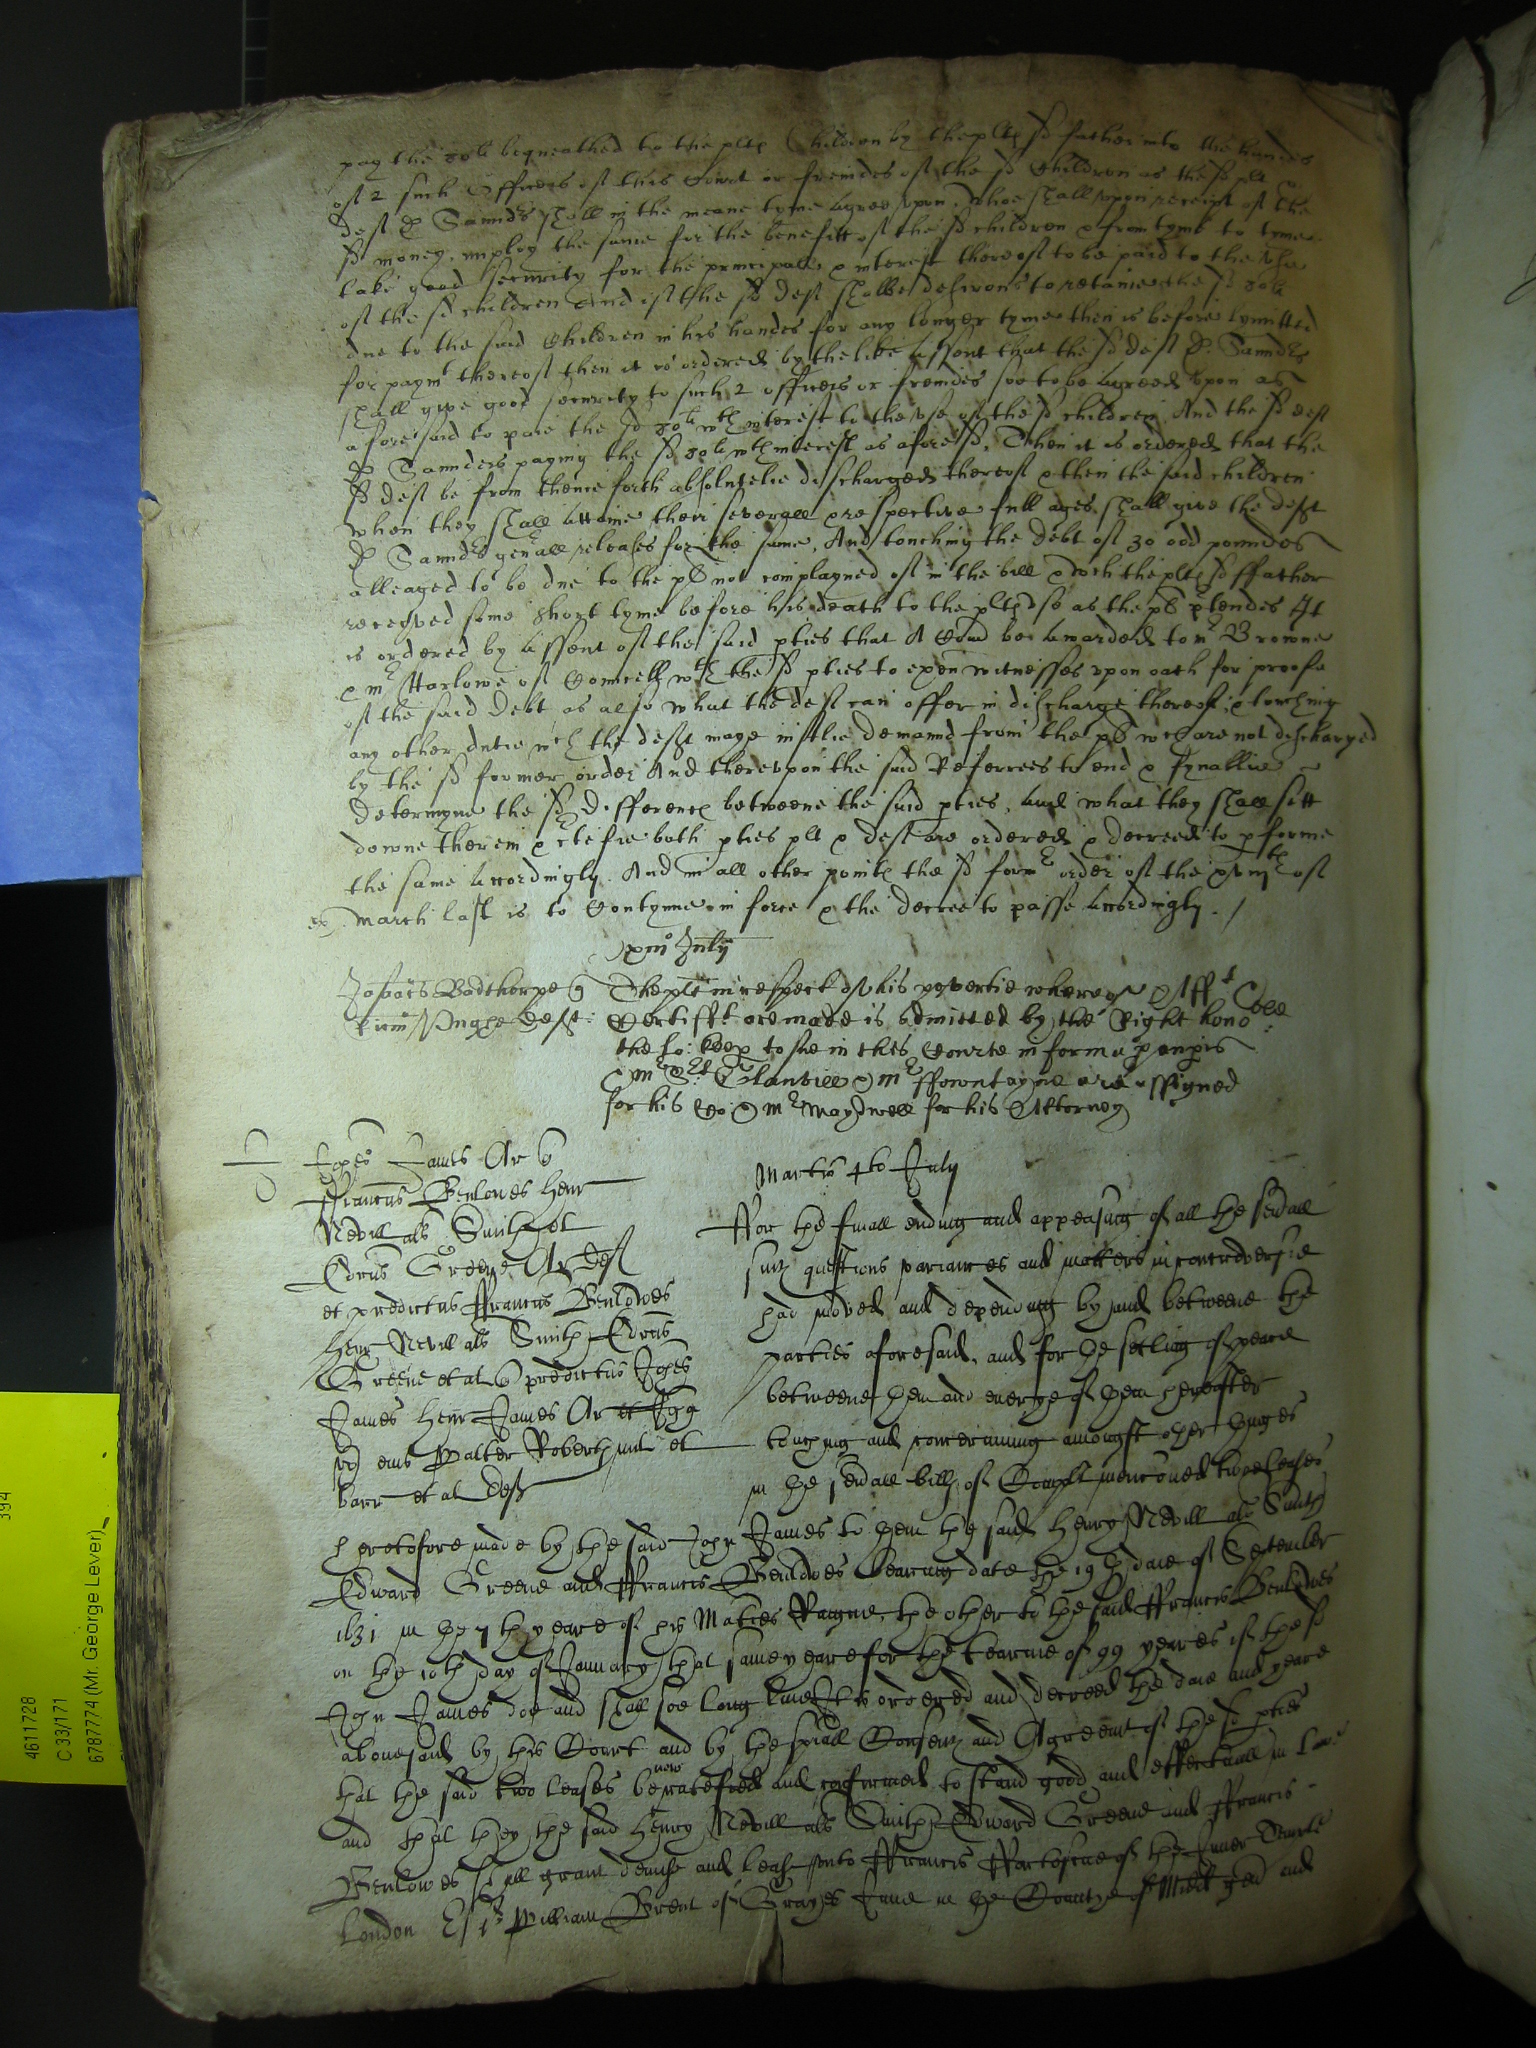 pay the 80li bequeathed to the plts Children by the plts sd father into the handes
of 2 such Officers of this Court or freindes of the sd Children as the sd plt &
deft P. Saunders shall in the meane tyme agree upon, whoe shall upon receipt of the
sd money, imploy the same for the benefitt of the sd children & from tyme to tyme
take good security for the principall & interest thereof to be paid to the use
of the sd children And if the sd deft shalbe desirous to retaine the sd 80li
due to the said Children in his handes for any longer tyme then is before lymitted
for paymt thereof then it is ordered by the like assent that the sd deft P. Saunders
shall give good security to such 2 officers or freindes soe to be agreed upon as
aforesaid to paie the sd 80li wth interest to the use of the sd children. And the sd deft
P. Saunders paying the sd 80li wth interest as aforesd, Then it is ordered that the
sd deft be from thenceforth absolutelie discharged thereof & then the said children
when they shall attaine their severall & respective full ages shall give the deft
P. Saunders genall releases for the same, And touching the debt of 30 odd poundes
alleaged to be due to the pl not complayned of in the bill & wch the plts sd ffather
receyved some short tyme before his death to the plts use as the pl ptendes It
is ordered by assent of the said pties that A Com be awarded to mr Browne
& mr Harlowe of Councell wth the sd pties to exam witnesses upon oath for proofe
of the said Debt as also what the deft can offer in discharge thereof, & touching
any other dutie wch the deft maye iustlie demannd from the pl wch are not discharged
by the sd former order And thereupon the said Referrees to end & fynallie
determyne the sd differences betweene the said pties, And what they shall sett
downe therein & ctefie both pties plt & deft are ordered & decreed to pforme
the same accordingly. And in all other points the sd form order of the of
March last is to Contynue in force & the decree to passe accordingly.
July
Bodthorpe The plt in respect of his povertie whereof Afft &
deft: Certifft are made is admitted by the Right hono:ble
the Lo: keep to sue in this Courte in forma pauperis
& mr Glanvill & mr ffountayne are assigned
for his Co & mr Maydwell for his Attorney
Johes James Ar
Martis 4to July
ffranciscus Benlowes Henr
Nevill als Smith et
ffor the finall ending and appeasing of all the sevall
Edrus Greene Ar Deft
suits questions variances and matters in controversie
et predictus ffrancus Benlowes
had moved and depending by and betweene the
Henr Nevill als Smith Edrus
parties aforesaid, and for the setling of peace
Greene et al predictus Johes
betweene them and everye of them hereafter
James Henr James Ar et
touching and concerning amongst other things
Walter Roberts et
in the sevall bills of Complt mencioned two leases
barr et al Deft
heretofore made by the said John James to them the said Henry Nevill als Smith
Edward Greene and ffrancis Benlowes bearing date the 19th daie of September
1631 in the 7th yeare of his Maties Raigne, the other to the said ffrancis Benlowes
on the 10th day of January that same yeare for the tearme of 99 yeares if the sd
John James doe and shall soe long live It is ordered and decreed the daie and yeare
abovesaid by this Court and by the spiall Consent and Agreemt of the sd pties
that the said two leases be now ratefied and confirmed to stand good and effectuall in Lawe
and that they the said Henry Nevill als Smith Edward Greene and ffrancis
Benlowes shall grant demise and lease unto ffrancis ffortescue of the Inner Temple
London Esqr William Brent of Grayes Inne in the Countye of Midd gen and
4611728
C 33/171
6787774 (Mr. George Lever)
394